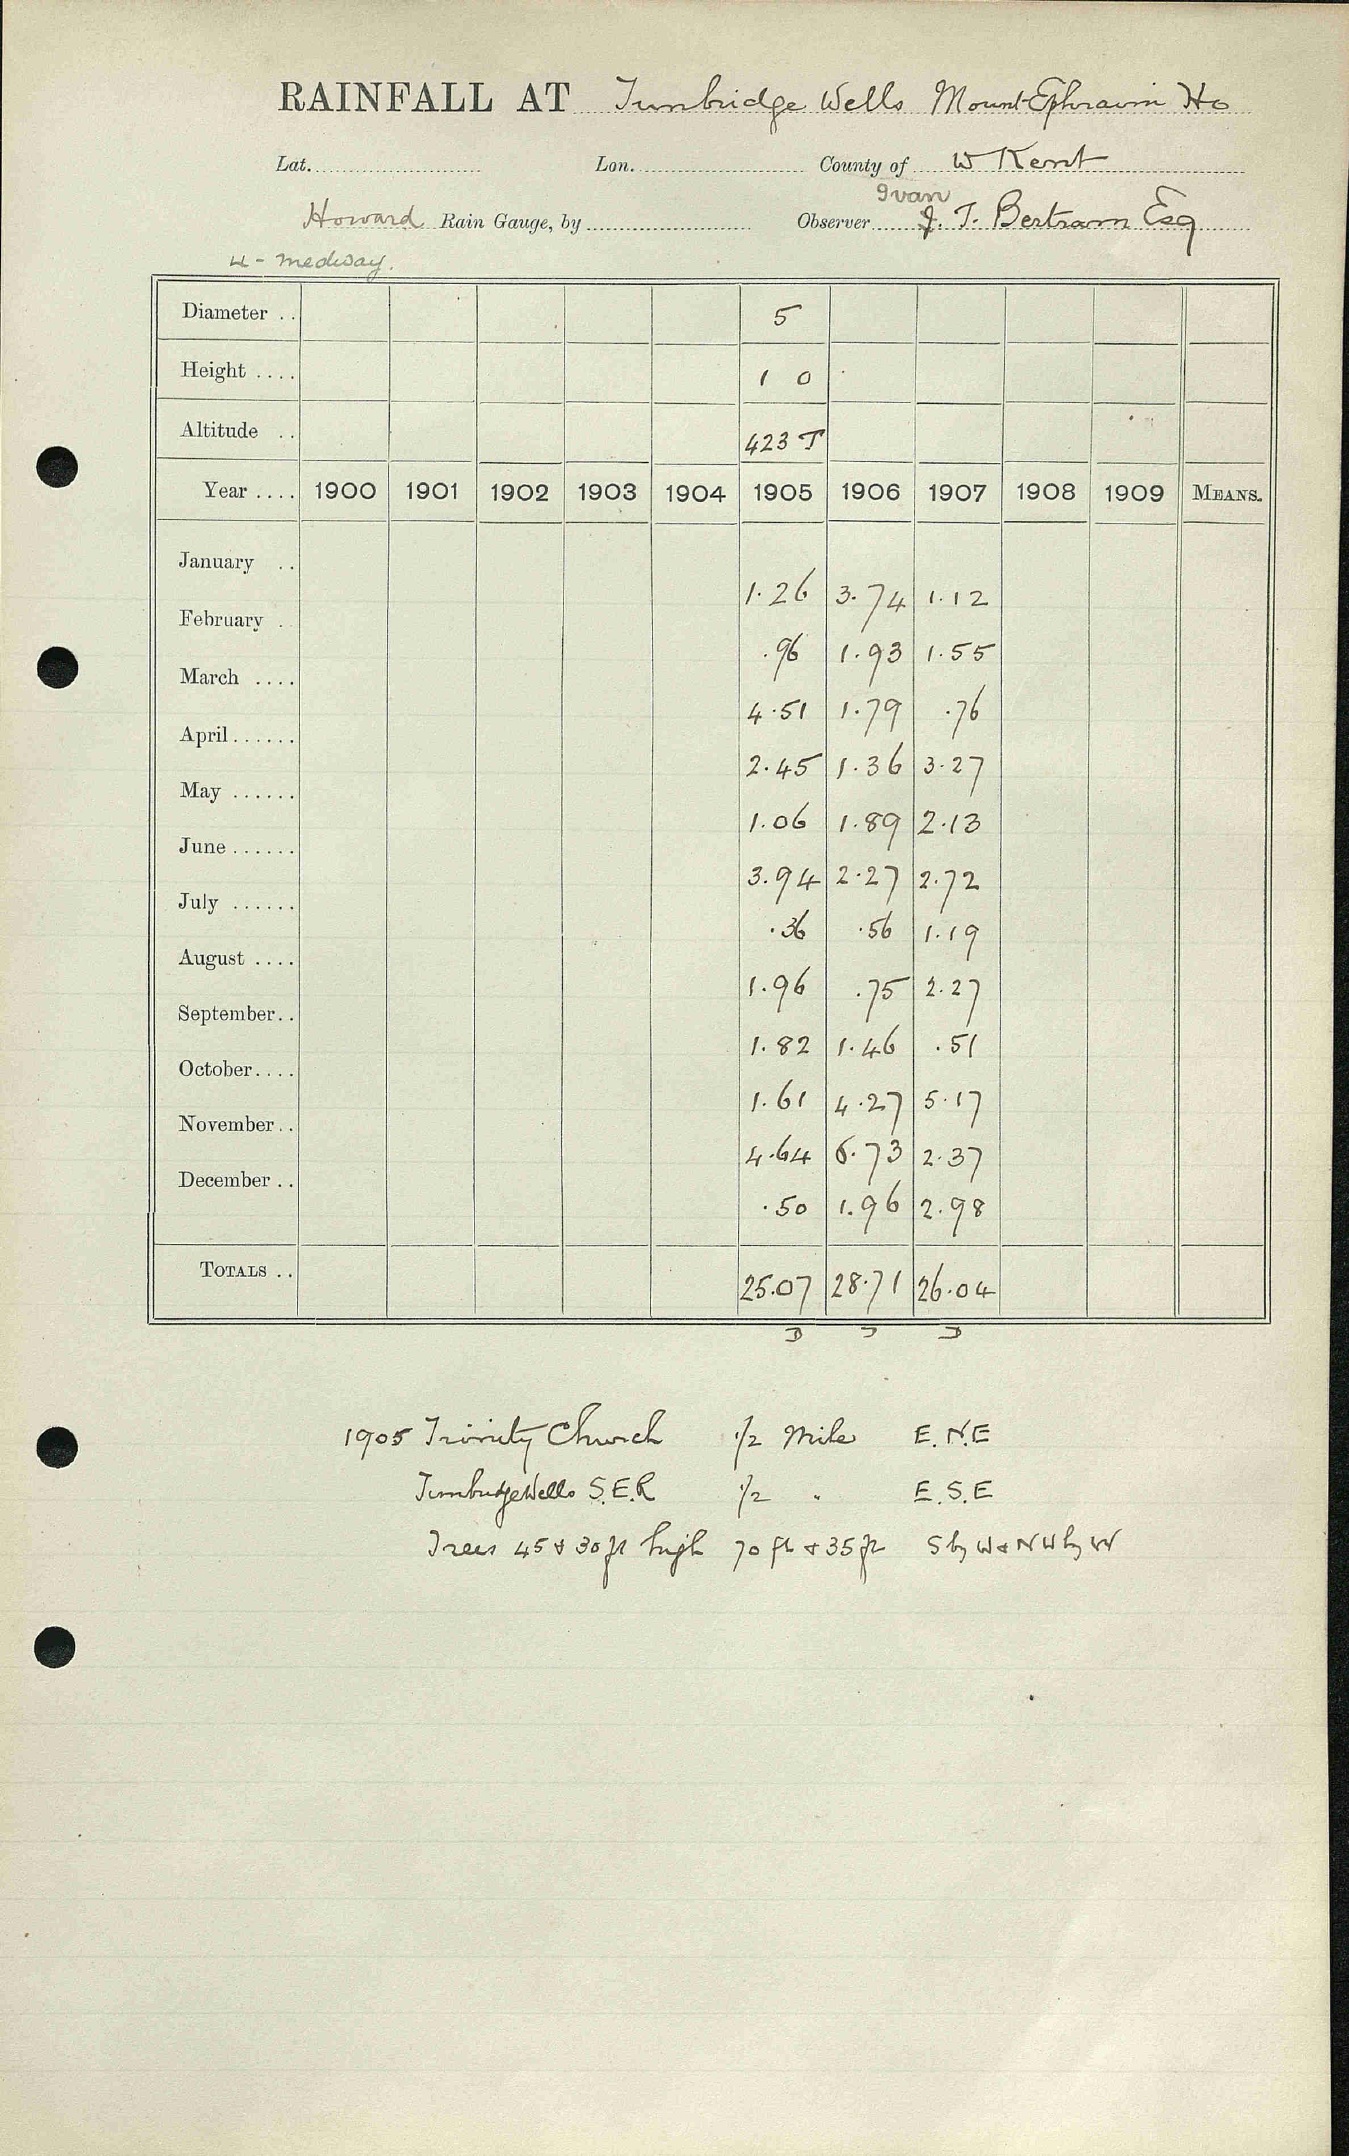 RAINFALL AT Tunbridge Wells Mount Ephraim Ho
Lat. Lon. County of W Kent
Ivan
Howard Rain Gauge, by Observer J. T. Bertram Esq
4 - Medway.
Diameter .. 5
Height .... 1 0
Altitude .. 423 T
Year .... 1900 1901 1902 1903 1904 1905 1906 1907 1908 1909 MEANS.
January .. 1.26 3.74 1.12
February . .96 1.93 1.55
March .... 4.51 1.79 .76
April...... 2.45 1.36 3.27
May ...... 1.06 1.89 2.13
June ...... 3.94 2.27 2.72
July ...... .36 .56 1.19
August .... 1.96 .75 2.27
September.. 1.82 1.46 .51
October.... 1.61 4.27 5.17
November.. 4.64 6.73 2.37
December .. .50 1.96 2.98
TOTALS .. 25.07 28.71 26.04
1905 Trinity Church 1/2 Mile E.N.E
Tunbridge Wells S.E.R 1/2 " E.S.E
Trees 45 & 30 ft high 70 ft & 35 ft S by W & N W by W